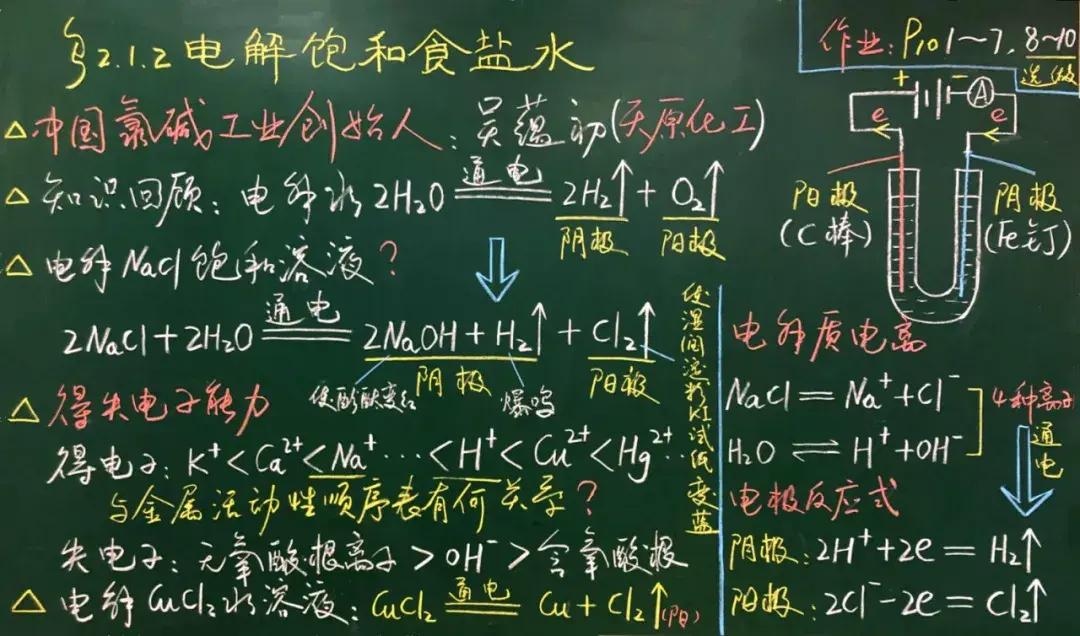 §2.1.2电解饱和食盐水
作业:P10 1～7, 8～10
选做
△中国氯碱工业创始人:吴蕴初(天原化工)
△知识回顾:电解水2H₂O 通电 2H₂↑+O₂↑
阴极 阳极
△电解NaCl饱和溶液?
2NaCl+2H₂O 通电 2NaOH+H₂↑+Cl₂↑
阴极 阳极
使酚酞变红 爆鸣
使湿润淀粉KI试纸变蓝
△得失电子能力
得电子:K⁺<Ca²⁺<Na⁺…<H⁺<Cu²⁺<Hg²⁺…
与金属活动性顺序表有何关学?
失电子:无氧酸根离子>OH⁻>含氧酸根
△电解CuCl₂水溶液:CuCl₂ 通电 Cu+Cl₂↑(阳)
+ − A
e e
阳极
(C棒)
阴极
(Fe钉)
电解质电离
NaCl=Na⁺+Cl⁻
H₂O⇌H⁺+OH⁻
4种离子
通电
电极反应式
阴极:2H⁺+2e=H₂↑
阳极:2Cl⁻-2e=Cl₂↑